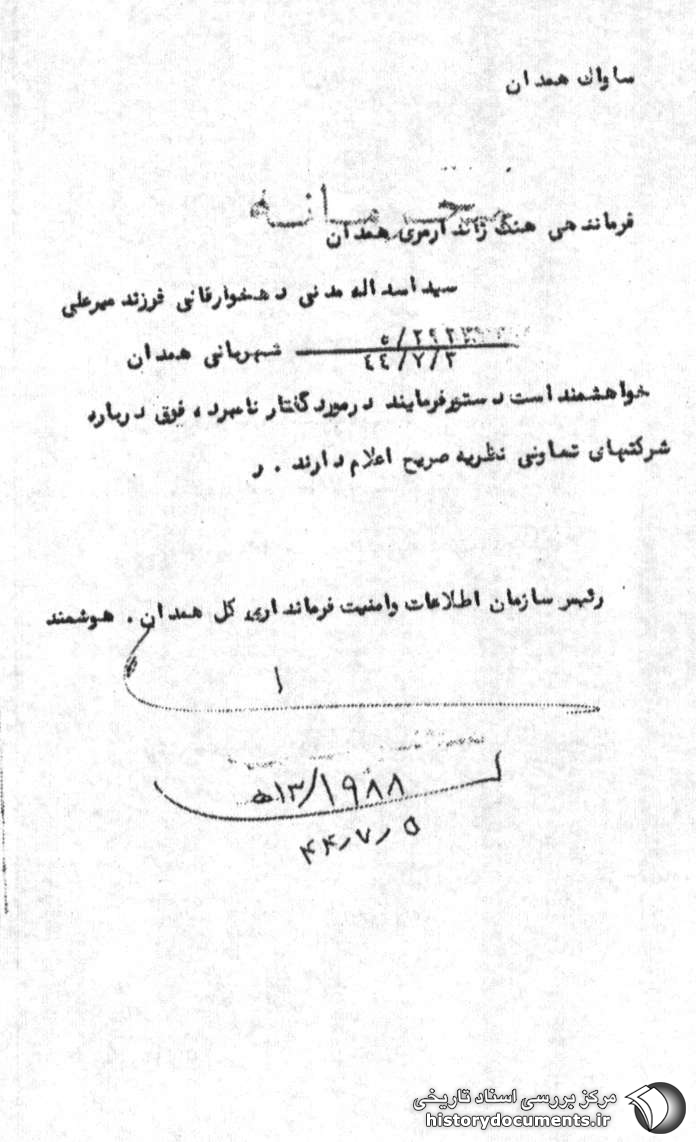 ساواك همدان
محرمانه
فرماندهی هنگ ژاندارمری همدان
سید اسداله مدنی دهخوارقانی فرزند میرعلی
۵/۲۹۲
شهربانی همدان
۴۴/۷/۳
خواهشمند است دستور فرمایند در مورد گفتار نامبرده فوق درباره
شرکتهای تعاونی نظریه صریح اعلام دارند . ر
رئیس سازمان اطلاعات و امنیت فرمانداری کل همدان . هوشمند
۱۹۸۸/۱۳ه‍
۴۴٫۷٫۵
مرکز بررسی اسناد تاریخی
historydocuments.ir